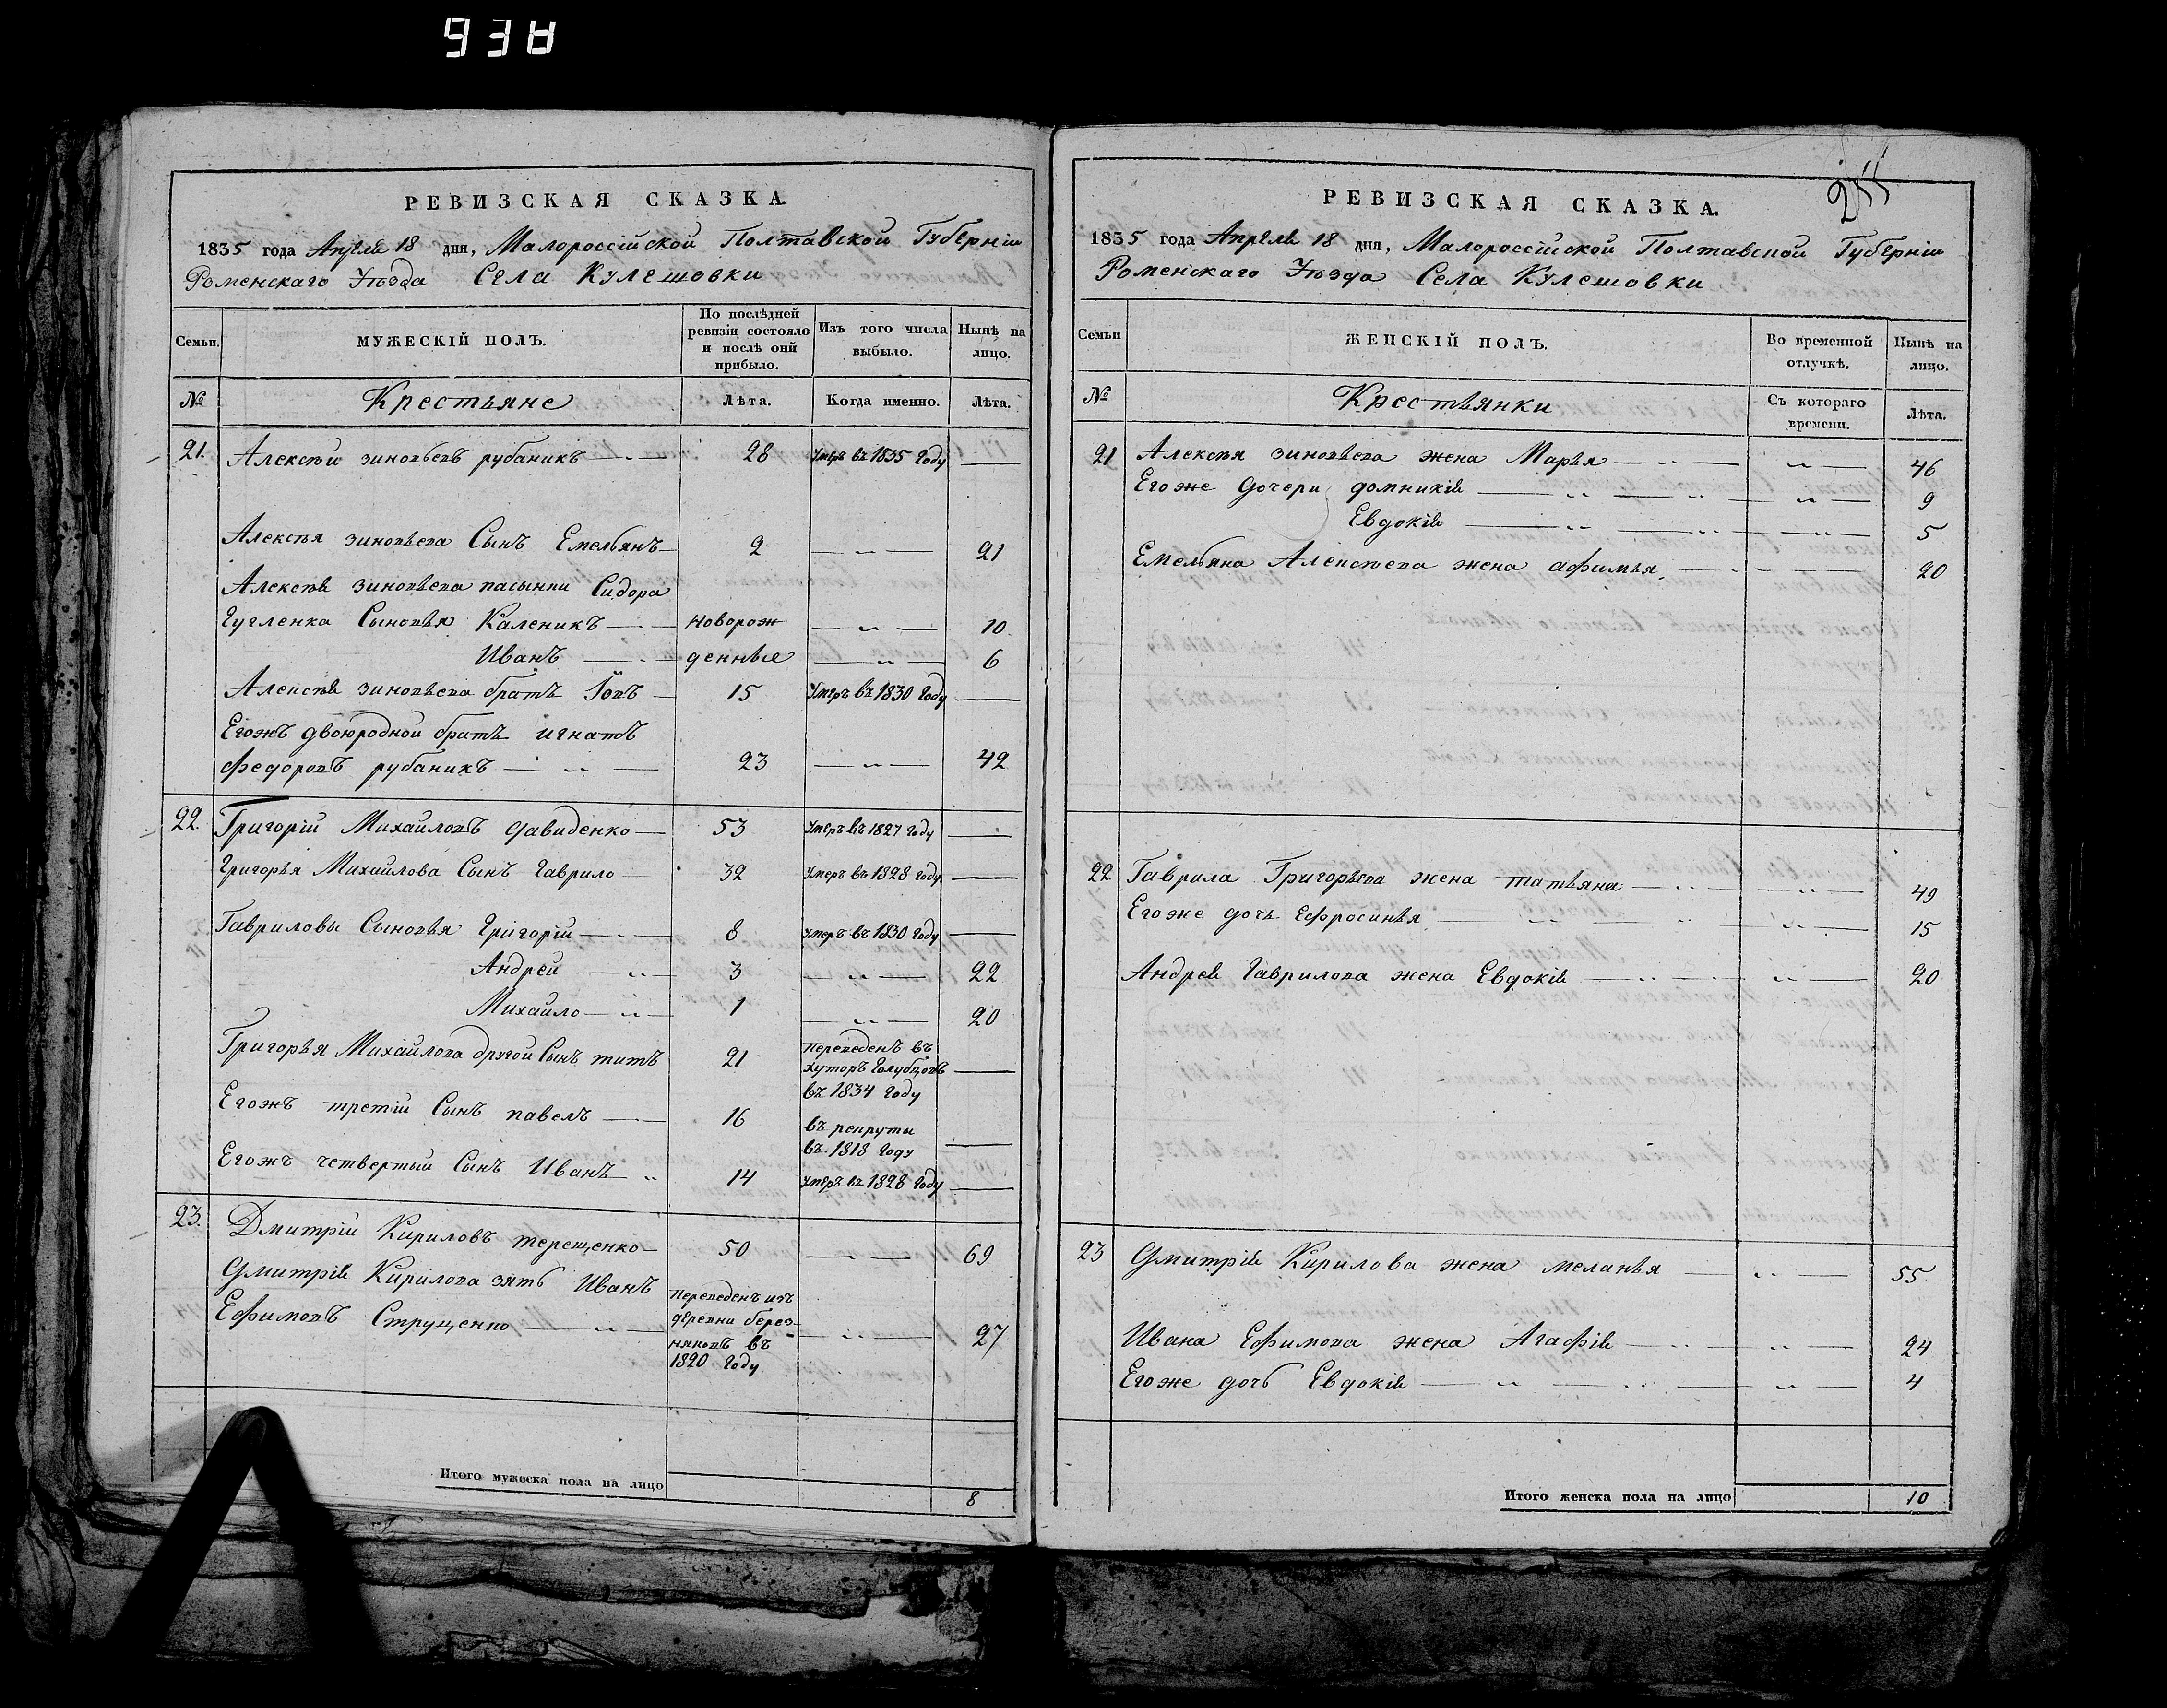 РЕВИЗСКАЯ СКАЗКА.
1835 года Апреля 18 дня, Малороссійской Полтавской Губерніи
Роменскаго Уѣзда Села Кулешовки
Семьи.
МУЖЕСКІЙ ПОЛЪ.
По послѣдней ревизіи состояло и послѣ оній прибыло.
Изъ того числа выбыло.
Нынѣ на лицо.
№
Крестьяне
Лѣта.
Когда именно.
Лѣта.
21. Алексѣй зиновьевъ рубаникъ 28 умеръ въ 1835 году
Алексѣя зиновьева Сынъ Емельянъ 2 21
Алексѣя зиновьева пасынки Сидора
Гугленка Сыновья Каленикъ новорож 10
Иванъ денные 6
Алексѣя зиновьева братъ Іовъ 15 Умеръ въ 1830 году
Егожъ двоюродной братъ игнатъ
федоровъ рубаникъ 23 42
22. Григорій Михайловъ давиденко 53 умеръ въ 1827 году
Григорья Михайлова Сынъ Гаврило 32 умеръ въ 1828 году
Гавриловы Сыновья Григорій 8 умеръ въ 1830 году
Андрей 3 22
Михайло 1 20
Григорья Михайлова другой Сынъ титъ 21 переведенъ въ
хуторъ Голубцовъ
въ 1834 году
Егожъ третій Сынъ павелъ 16 въ рекруты
въ 1818 году
Егожъ четвертый Сынъ Иванъ 14 умеръ въ 1828 году
23. Дмитрій Кириловъ терещенко 50 69
Дмитрія Кирилова зять Иванъ переведенъ изъ
Ефимовъ Струценко деревни берез-
няковъ въ 27
1820 году
Итого мужеска пола на лицо 8
РЕВИЗСКАЯ СКАЗКА.
1835 года Апреля 18 дня, Малороссійской Полтавской Губерніи
Роменскаго Уѣзда Села Кулешовки
Семьи
ЖЕНСКІЙ ПОЛЪ.
Во временной отлучкѣ.
Нынѣ на лицо.
№
Крестьянки
Съ котораго времени.
Лѣта.
21 Алексѣя зиновьева жена Марья 46
Егоже дочери домникія 9
Евдокія 5
Емельяна Алексѣева жена афимья 20
22 Гаврила Григорьева жена татьяна 49
Егоже дочь Ефросинья 15
Андрея Гаврилова жена Евдокія 20
23 Дмитрія Кирилова жена меланья 55
Ивана Ефимова жена Агафія 24
Егоже дочь Евдокія 4
Итого женска пола на лицо 10